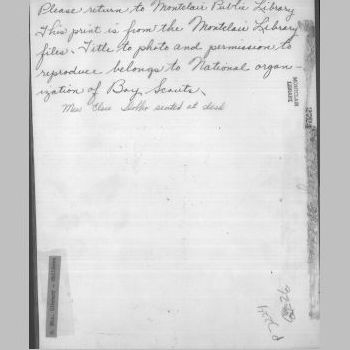 Please return to Montclair Public Library
This print is from the Montclair Library
files. Title to photo and permission to
reproduce belongs to National organ-
ization of Boy Scouts.
Miss Elsie seated at desk
MONTCLAIR
LIBRARY